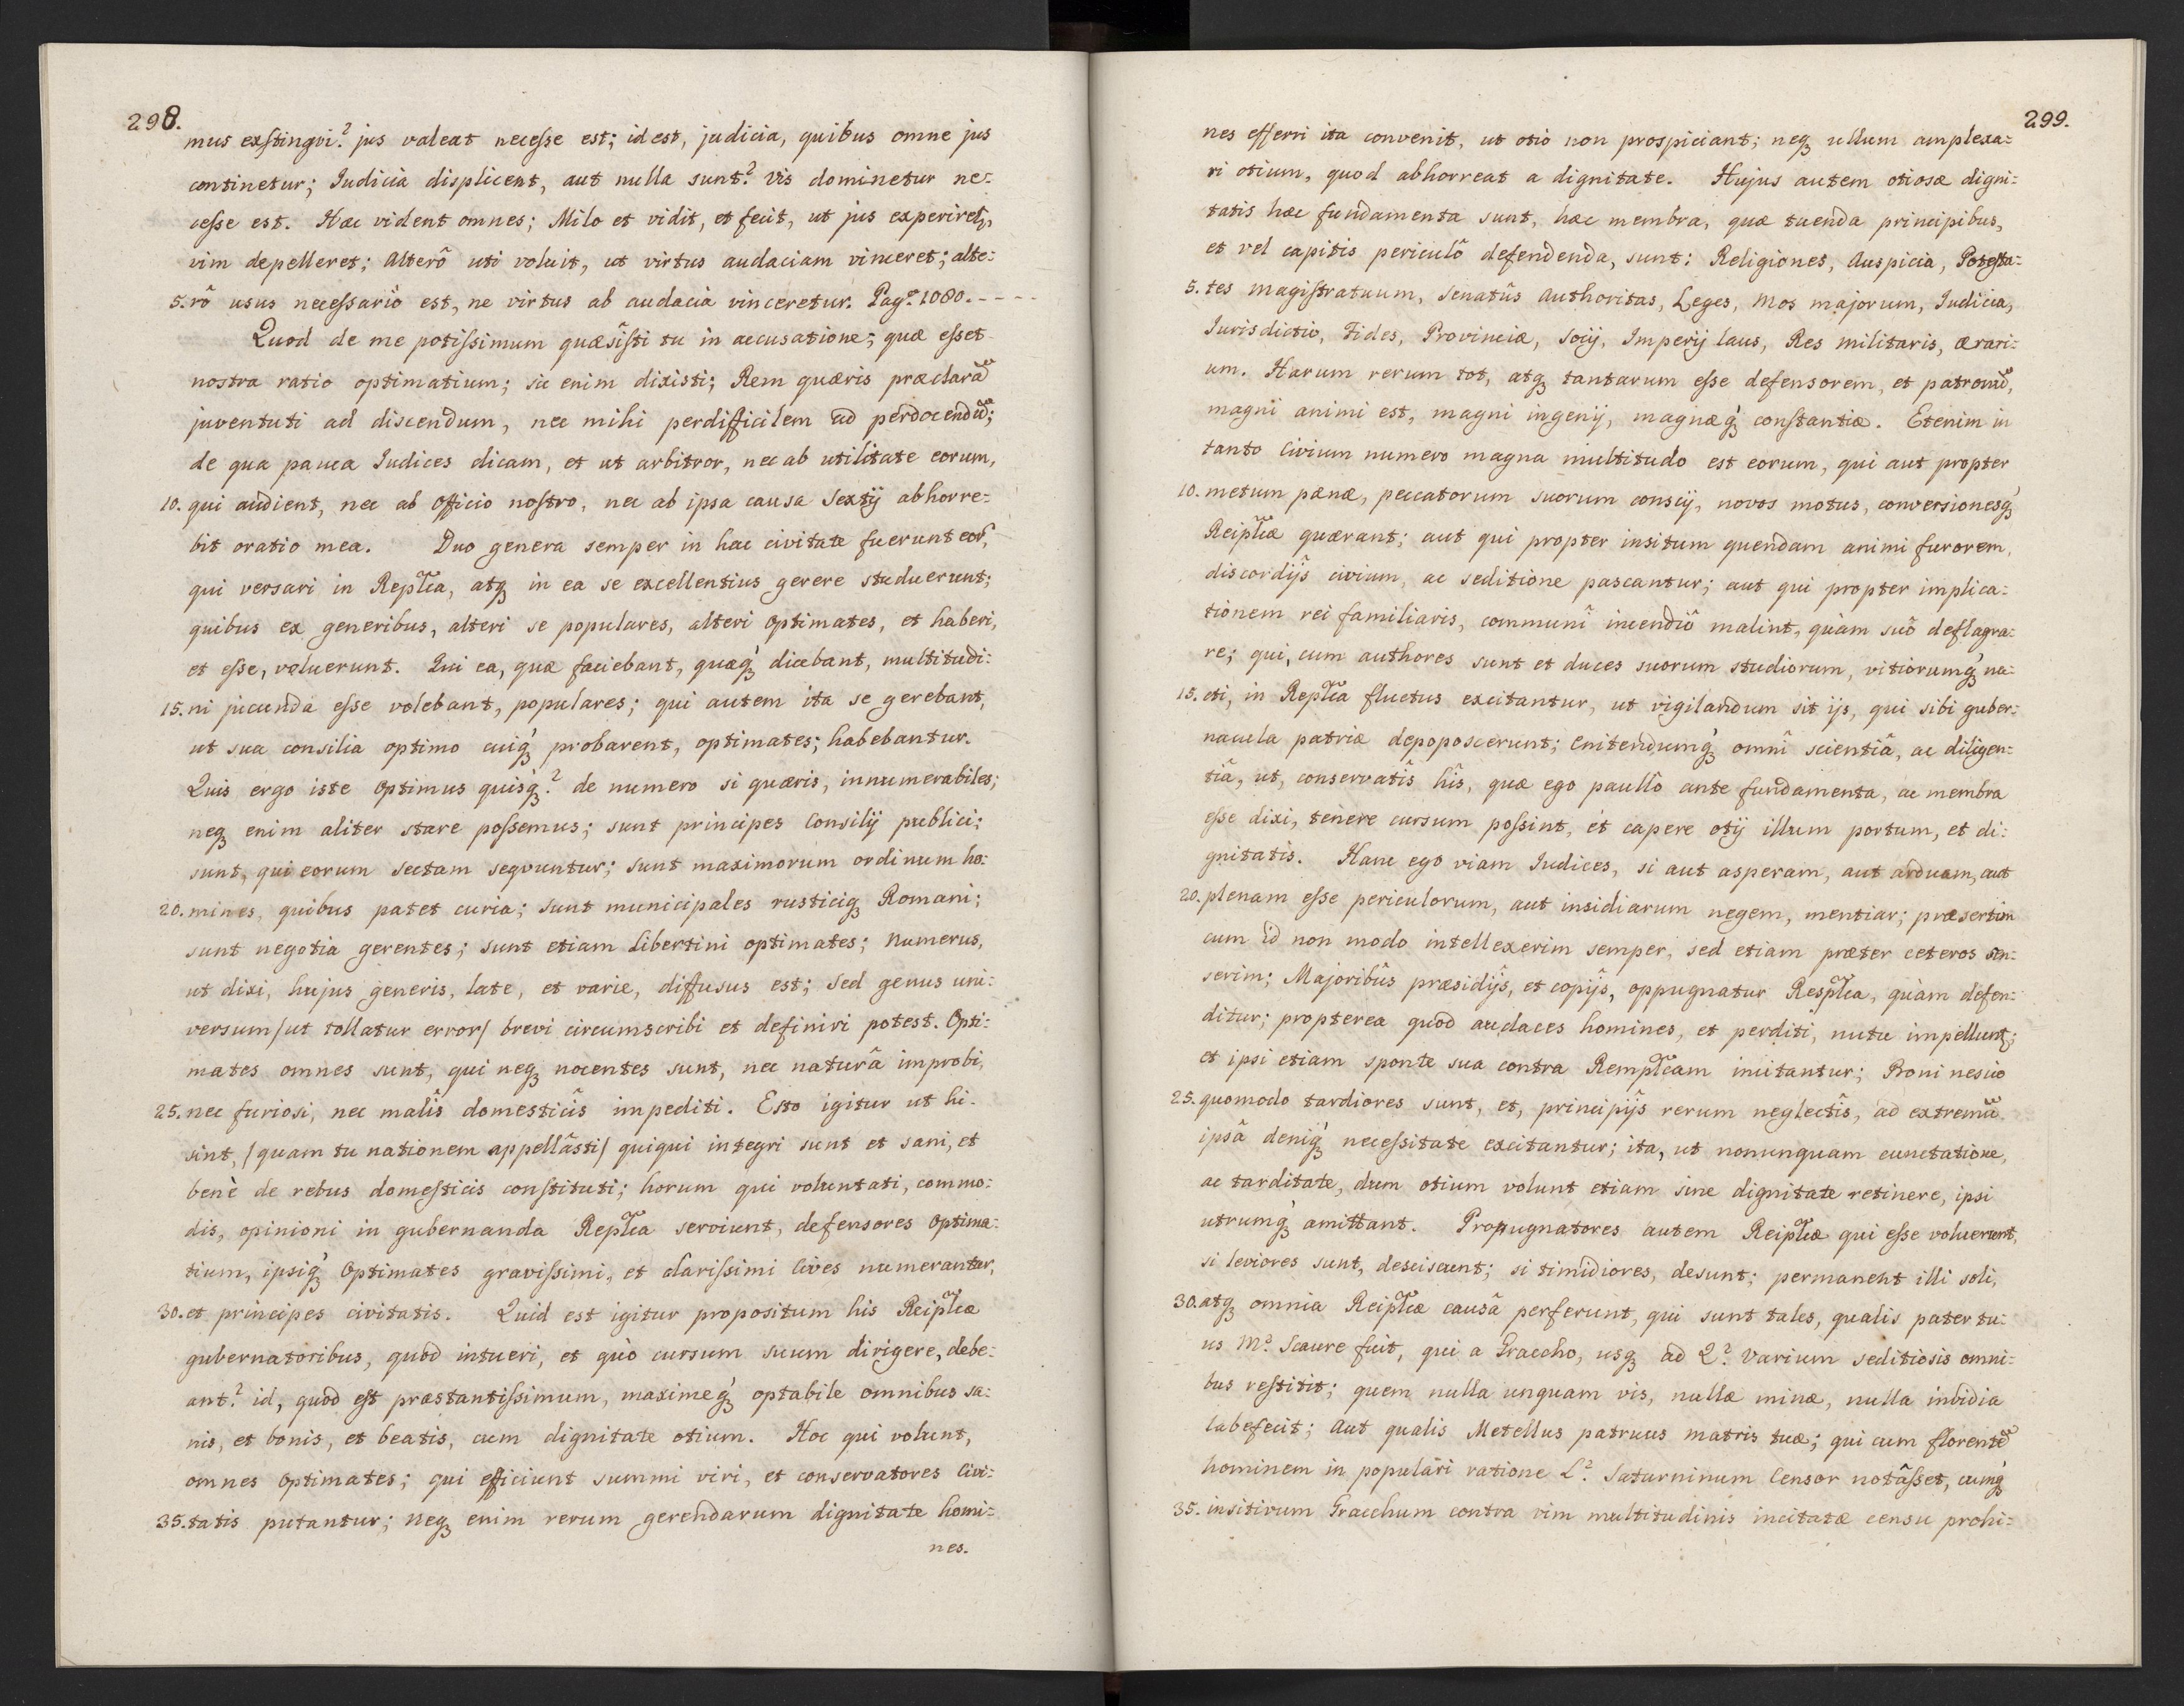 298.
mus exstingvi? jus valeat necesse est; id est, judicia, quibus omne jus
continetur; Iudicia displicent, aut nulla sunt? Vis dominetur ne=
cesse est. Hæc vident omnes; Milo et vidit, et fecit, ut jus experiretꝫ,
vim depelleret; Alterô uti voluit, ut virtus audaciam vinceret; alte=
5. rô usus necessariò est, ne virtus ab audacia vinceretur. Pagᵃ 1080. - - - -
Quod de me potissimum quæsîsti tu in accusatione; quæ esset
nostra ratio optimatium; sic enim dixisti; Rem quæris præclarã
juventuti ad discendum, nec mihi perdifficilem ad perdocendũ;
de qua pauca Iudices dicam, et ut arbitror, nec ab utilitate eorum,
10. qui audient, nec ab officio nostro, nec ab ipsa causa Sextij abhorre=
bit oratio mea. Duo genera semper in hac civitate fuerunt eoꝝ,
qui versari in Repl̃ca, atqꝫ in ea se excellentius gerere studuerunt;
quibus ex generibus, alteri se populares, alteri optimates, et haberi,
et esse, voluerunt. Qui ea, quæ faciebant, quæqꝫ́ dicebant, multitudi=
15. ni jucunda esse volebant, populares; qui autem ita se gerebant,
ut sua consilia optimo cuiqꝫ́ probarent, optimates; habebantur.
Quis ergo iste Optimus quisqꝫ́? de numero si quæris, innumerabiles;
neqꝫ enim aliter stare possemus; sunt principes Consilij publici;
sunt, qui eorum sectam seqvuntur; sunt maximorum ordinum ho=
20. mines, quibus patet curia; sunt municipales rusticiqꝫ Romani;
sunt negotia gerentes; sunt etiam Libertini optimates; Numerus,
ut dixi, hujus generis, late, et varie, diffusus est; Sed genus uni=
versum /ut tollatur error/ brevi circumscribi et definiri potest. Opti=
mates omnes sunt, qui neqꝫ nocentes sunt, nec naturâ improbi,
25. nec furiosi, nec malîs domesticîs impediti. Esto igitur ut hi
sint, /quam tu nationem appellâsti/ quiqui integri sunt et sani, et
benè de rebus domesticis constituti; horum qui voluntati, commo=
dis, opinioni in gubernanda Repl̃ca serviunt, defensores Optima=
tium, ipsiqꝫ́ Optimates gravissimi, et clarissimi Cives numerantur,
30. et principes civitatis. Quid est igitur propositum his Reipl̃cæ
gubernatoribus, quod intueri, et quò cursum suum dirigere, debe=
ant? id, quod est præstantissimum, maximeqꝫ́ optabile omnibus sa=
nis, et bonis, et beatis, cum dignitate otium. Hoc qui volunt,
omnes Optimates; qui efficiunt summi viri, et conservatores Civi=
35. tatis putantur; neqꝫ enim rerum gerendarum dignitate homi=
nes.
299.
nes efferri ita convenit, ut otiô non prospiciant; neqꝫ ullum amplexa=
ri otium, quod abhorreat a dignitate. Hujus autem otiosæ digni=
tatis hæc fundamenta sunt, hæc membra, quæ tuenda principibus,
et vel capitis periculô defendenda, sunt: Religiones, Auspicia, Potesta=
5. tes magistratuum, Senatûs Authoritas, Leges, Mos majorum, Iudicia,
Iurisdictio, Fides, Provinciæ, Socij, Imperij laus, Res militaris, ærari=
um. Harum rerum tot, atqꝫ tantarum esse defensorem, et patronũ,
magni animi est, magni ingenij, magnæqꝫ́ constantiæ. Etenim in
tanto Civium numero magna multitudo est eorum, qui aut propter
10. metum pœnæ, peccatorum suorum conscij, novos motus, conversionesqꝫ́
Reipl̃cæ quærant; aut qui propter insitum quendam animi furorem,
discordijs civium, ac seditione pascantur; aut qui propter implica=
tionem rei familiaris, communi incendiô malint, quàm suô deflagra=
re; qui, cum authores sunt et duces suorum studiorum, vitiorumqꝫ́ na=
15. cti, in Repl̃ca fluctus excitantur, ut vigilandum sit ijs, qui sibi guber=
nacula patriæ depoposcerunt; enitendumqꝫ́ omnî scientiâ, ac diligen=
tiâ, ut, conservatîs hîs, quæ ego paullò ante fundamenta, ac membra
esse dixi, tenere cursum possint, et capere otij illum portum, et di=
gnitatis. Hanc ego viam Iudices, si aut asperam, aut arduam, aut
20. plenam esse periculorum, aut insidiarum negem, mentiar; præsertim
cum id non modo intellexerim semper, sed etiam præter ceteros sen=
serim; Majoribûs præsidijs, et copijs, oppugnatur Respl̃ca, quàm defen=
ditur; propterea quod audaces homines, et perditi, nutu impelluntꝫ;
et ipsi etiam sponte sua contra Rempl̃cam incitantur; Boni nescio
25. quomodo tardiores sunt, et, principijs rerum neglectîs, ad extremũ
ipsâ deniqꝫ́ necessitate excitantur; ita, ut nonunquam cunctatione,
ac tarditate, dum otium volunt etiam sine dignitate retinere, ipsi
utrumqꝫ́ amittant. Propugnatores autem Reipl̃cæ qui esse voluerunt,
si leviores sunt, desciscunt; si timidiores, desunt; permanent illi soli,
30. atqꝫ omnia Reipl̃cæ causâ perferunt, qui sunt tales, qualis pater tu=
us M: Scaure fuit, qui a Graccho, usqꝫ ad Q: Varium seditiosis omni=
bus restitit; quem nulla unquam vis, nullæ minæ, nulla invidia
labefecit; Aut qualis Metellus patruus matris tuæ; qui cum florentẽ
hominem in populari ratione L: Saturninum Censor notâsset, cumqꝫ́
35. insitivum Gracchum contra vim multitudinis incitatæ censu prohi=